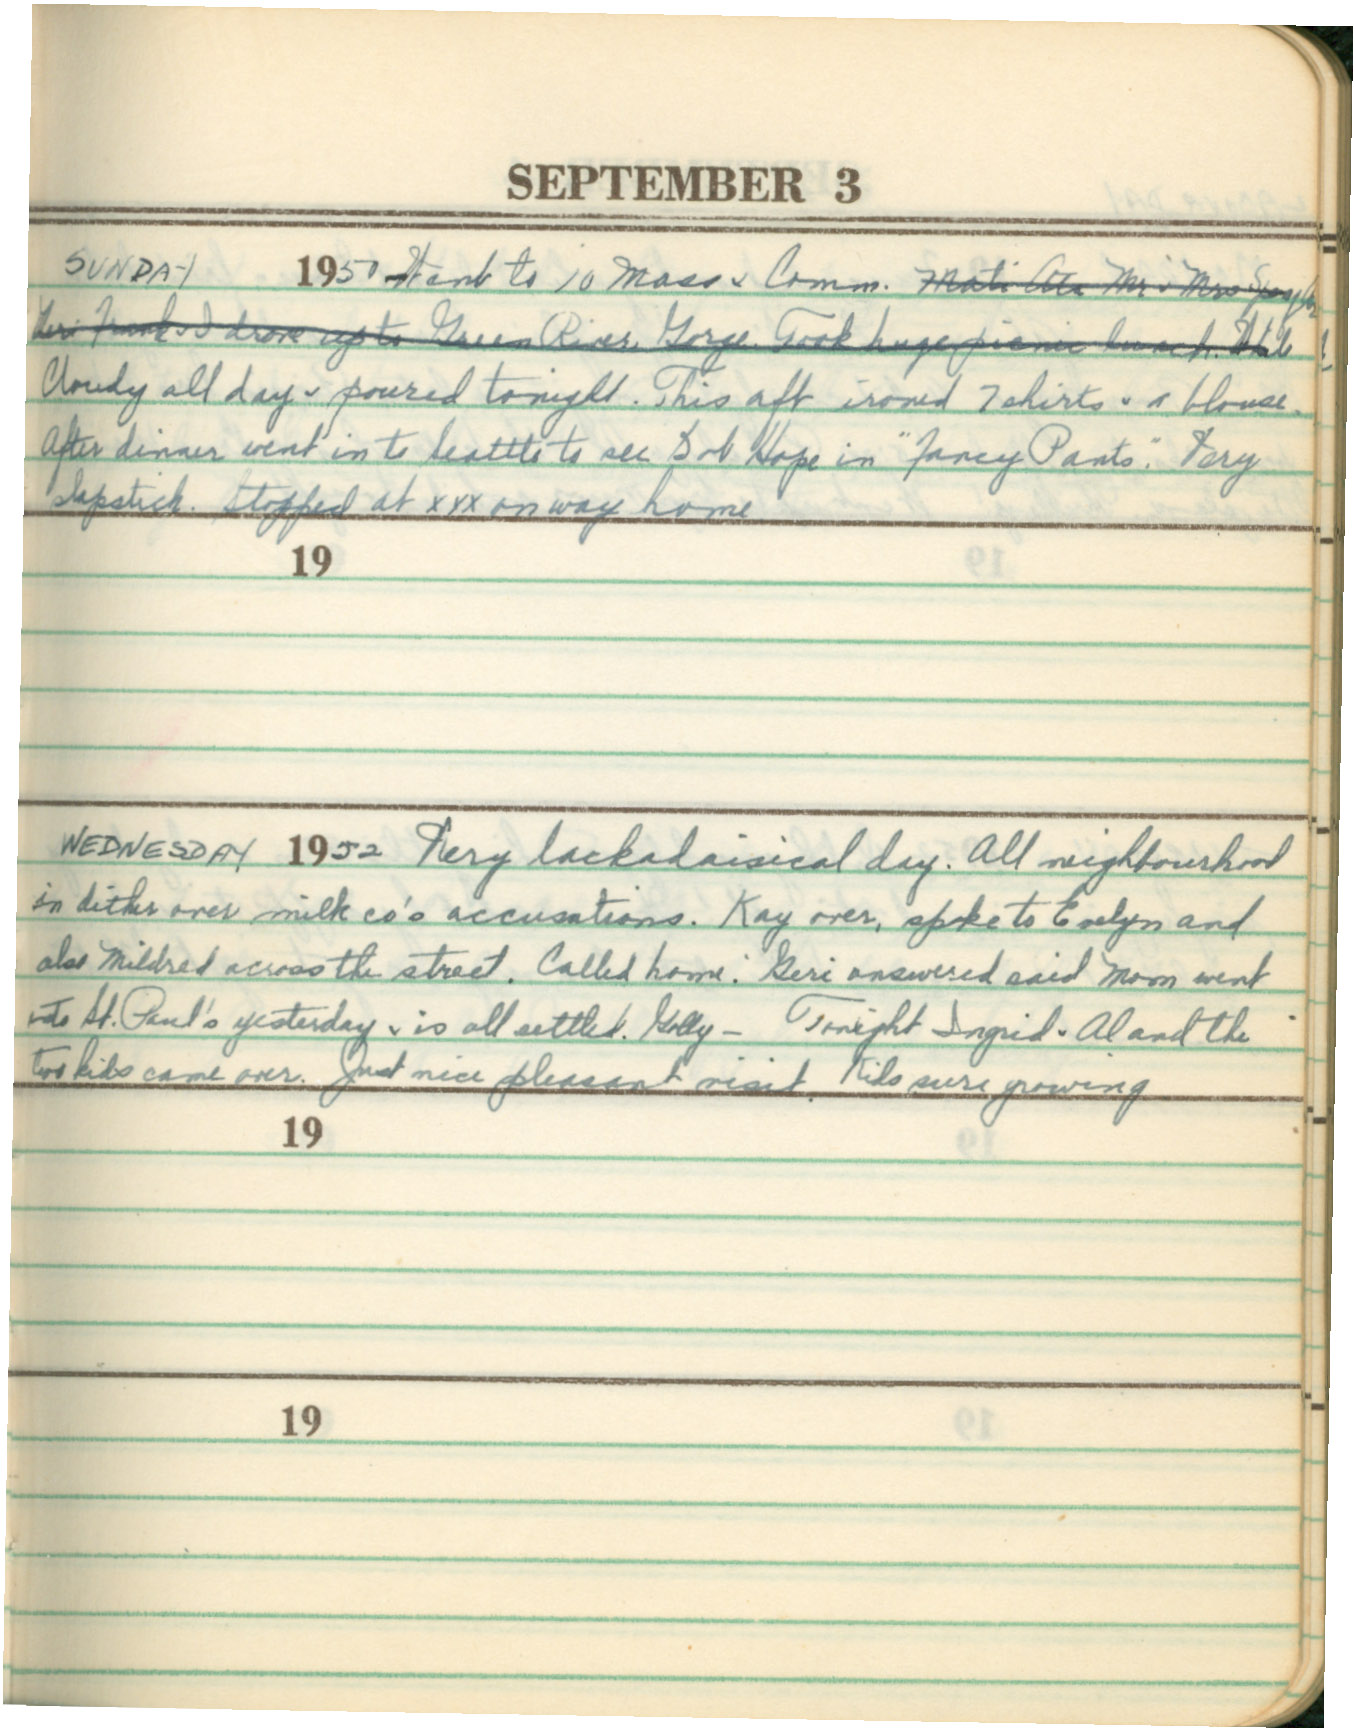 SEPTEMBER 3
SUNDAY 1950 Went to 10 Mass & Comm. Mr & Mrs
Frank & I drove up to Green River Gorge. Took huge picnic lunch.
Cloudy all day & poured tonight. This aft ironed 7 shirts & a blouse.
After dinner went in to Seattle to see Bob Hope in "Fancy Pants." Very
slapstick. Stopped at XXX on way home
19
WEDNESDAY 1952 Very lackadaisical day. All neighbourhood
in dither over milk co's accusations. Kay over, spoke to Evelyn and
also Mildred across the street. Called home. Geri answered said Mom went
into St. Paul's yesterday & is all settled. Golly – Tonight Ingrid & Al and the
two kids came over. Just nice pleasant visit. Kids sure growing
19
19